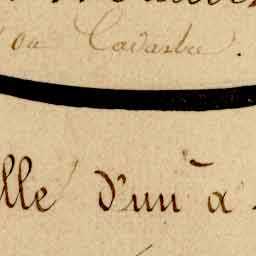 du Cadastre.
elle d'un à